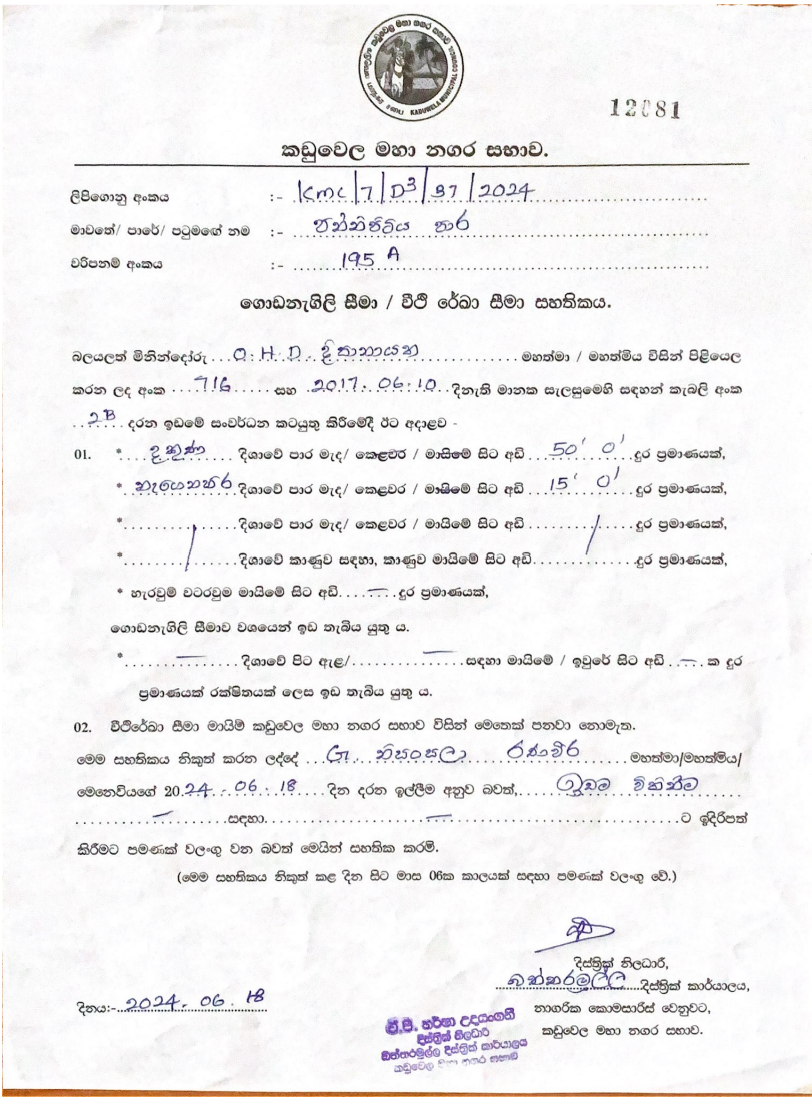 කඩුවෙල මහා නගර සභාව
KADUWELA MUNICIPAL
12081
කඩුවෙල මහා නගර සභාව.
ලිපිගොනු අංකය :- KMC/7/D3/37/2024
මාවතේ/ පාරේ/ පටුමගේ නම :- පන්නිපිටිය පාර
වරිපනම් අංකය :- 195 A
ගොඩනැගිලි සීමා / වීථි රේඛා සීමා සහතිකය.
බලයලත් මිනින්දෝරු ...O.H.D. දිසානායක... මහත්මා / මහත්මිය විසින් පිළියෙල
කරන ලද අංක ....716...... සහ .2017.06.10..දිනැති මානක සැලසුමෙහි සඳහන් කැබලි අංක
...2B... දරන ඉඩමේ සංවර්ධන කටයුතු කිරීමේදී ඊට අදාළව -
01. *....දකුණ...... දිශාවේ පාර මැද/ කෙළවර / මායිමේ සිට අඩි ...50' 0'...දුර ප්‍රමාණයක්,
*..නැගෙනහිර.දිශාවේ පාර මැද/ කෙළවර / මායිමේ සිට අඩි ...15' 0'...දුර ප්‍රමාණයක්,
*...............දිශාවේ පාර මැද/ කෙළවර / මායිමේ සිට අඩි .............දුර ප්‍රමාණයක්,
*...............දිශාවේ කාණුව සඳහා, කාණුව මායිමේ සිට අඩි.............දුර ප්‍රමාණයක්,
* හැරවුම් වටරවුම මායිමේ සිට අඩි.........දුර ප්‍රමාණයක්,
ගොඩනැගිලි සීමාව වශයෙන් ඉඩ තැබිය යුතු ය.
*...............දිශාවේ පිට ඇළ/...............සඳහා මායිමේ / ඉවුරේ සිට අඩි ....... ක දුර
ප්‍රමාණයක් රක්ෂිතයක් ලෙස ඉඩ තැබිය යුතු ය.
02. වීථිරේඛා සීමා මායිම් කඩුවෙල මහා නගර සභාව විසින් මෙතෙක් පනවා නොමැත.
මෙම සහතිකය නිකුත් කරන ලද්දේ ...G. නිසංසලා රණවීර...මහත්මා/මහත්මිය/
මෙනෙවියගේ 20.24..06..18....දින දරන ඉල්ලීම අනුව බවත්,.....ඉඩම විකිනීම
.....................සඳහා.............................................ට ඉදිරිපත්
කිරීමට පමණක් වලංගු වන බවත් මෙයින් සහතික කරමි.
(මෙම සහතිකය නිකුත් කළ දින සිට මාස 06ක කාලයක් සඳහා පමණක් වලංගු වේ.)
දිස්ත්‍රික් නිලධාරී,
බත්තරමුල්ල...දිස්ත්‍රික් කාර්යාලය,
දිනය:-..2024.06.18
නාගරික කොමසාරිස් වෙනුවට,
කඩුවෙල මහා නගර සභාව.
ඒ.පී. හර්ෂා උදයංගනී
දිස්ත්‍රික් නිලධාරී
බත්තරමුල්ල දිස්ත්‍රික් කාර්යාලය
කඩුවෙල මහා නගර සභාව